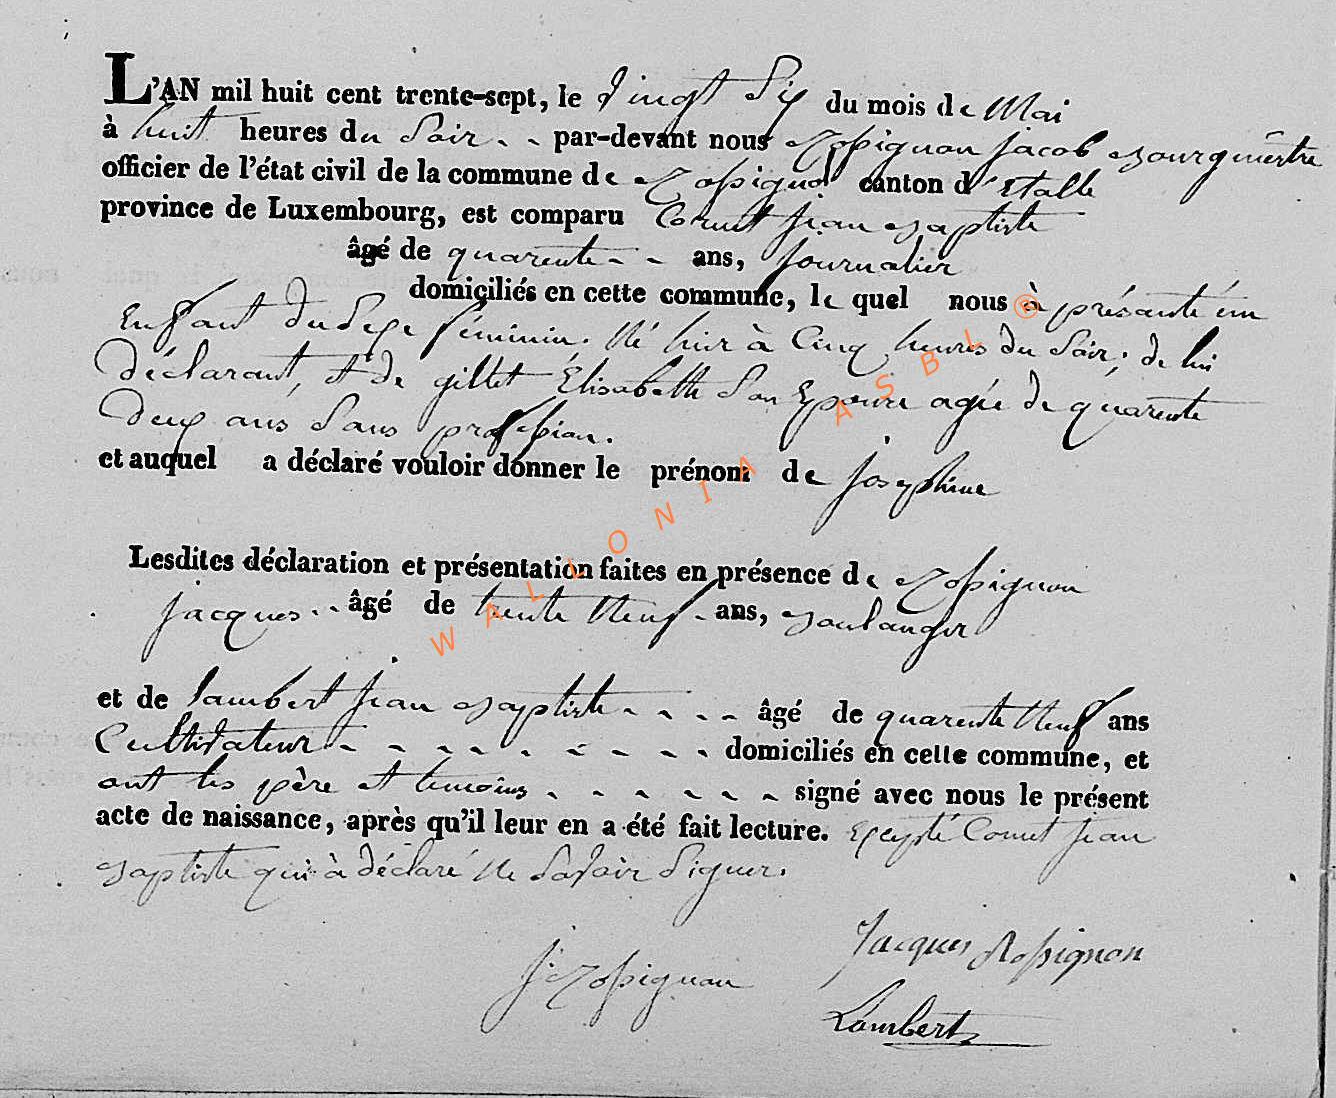 L'AN mil huit cent trente-sept, le Vingt Six du mois de Mai
à huit heures du Soir - - par-devant nous Rossignon Jacob Bourgmestre
officier de l'état civil de la commune de Rossignol canton d'Etalle
province de Luxembourg, est comparu Cornet Jean Baptiste
âgé de quarente - - ans, Journalier
domiciliés en cette commune, le quel nous à présenté un
Enfant du Sexe féminin. Né hier à Cinq heures du Soir, de lui
déclarant, et de gillet Élisabeth Son Epouse agée de quarente
deux ans Sans profession.
et auquel a déclaré vouloir donner le prénom de Josephine
Lesdites déclaration et présentation faites en présence de Rossignon
Jacques - - âgé de trente Neuf - ans, Boulanger
et de Lambert Jean Baptiste - - - - âgé de quarente Neuf ans
Cultivateur - - - - - - - - - domiciliés en cette commune, et
ont les père et temoins - - - - - - signé avec nous le présent
acte de naissance, après qu'il leur en a été fait lecture. Excepté Cornet Jean
Baptiste qui à déclaré Ne Savoir Signer.
Jacques Rossignon
J. Rossignon
Lambert
WALLONIA ASBL ®